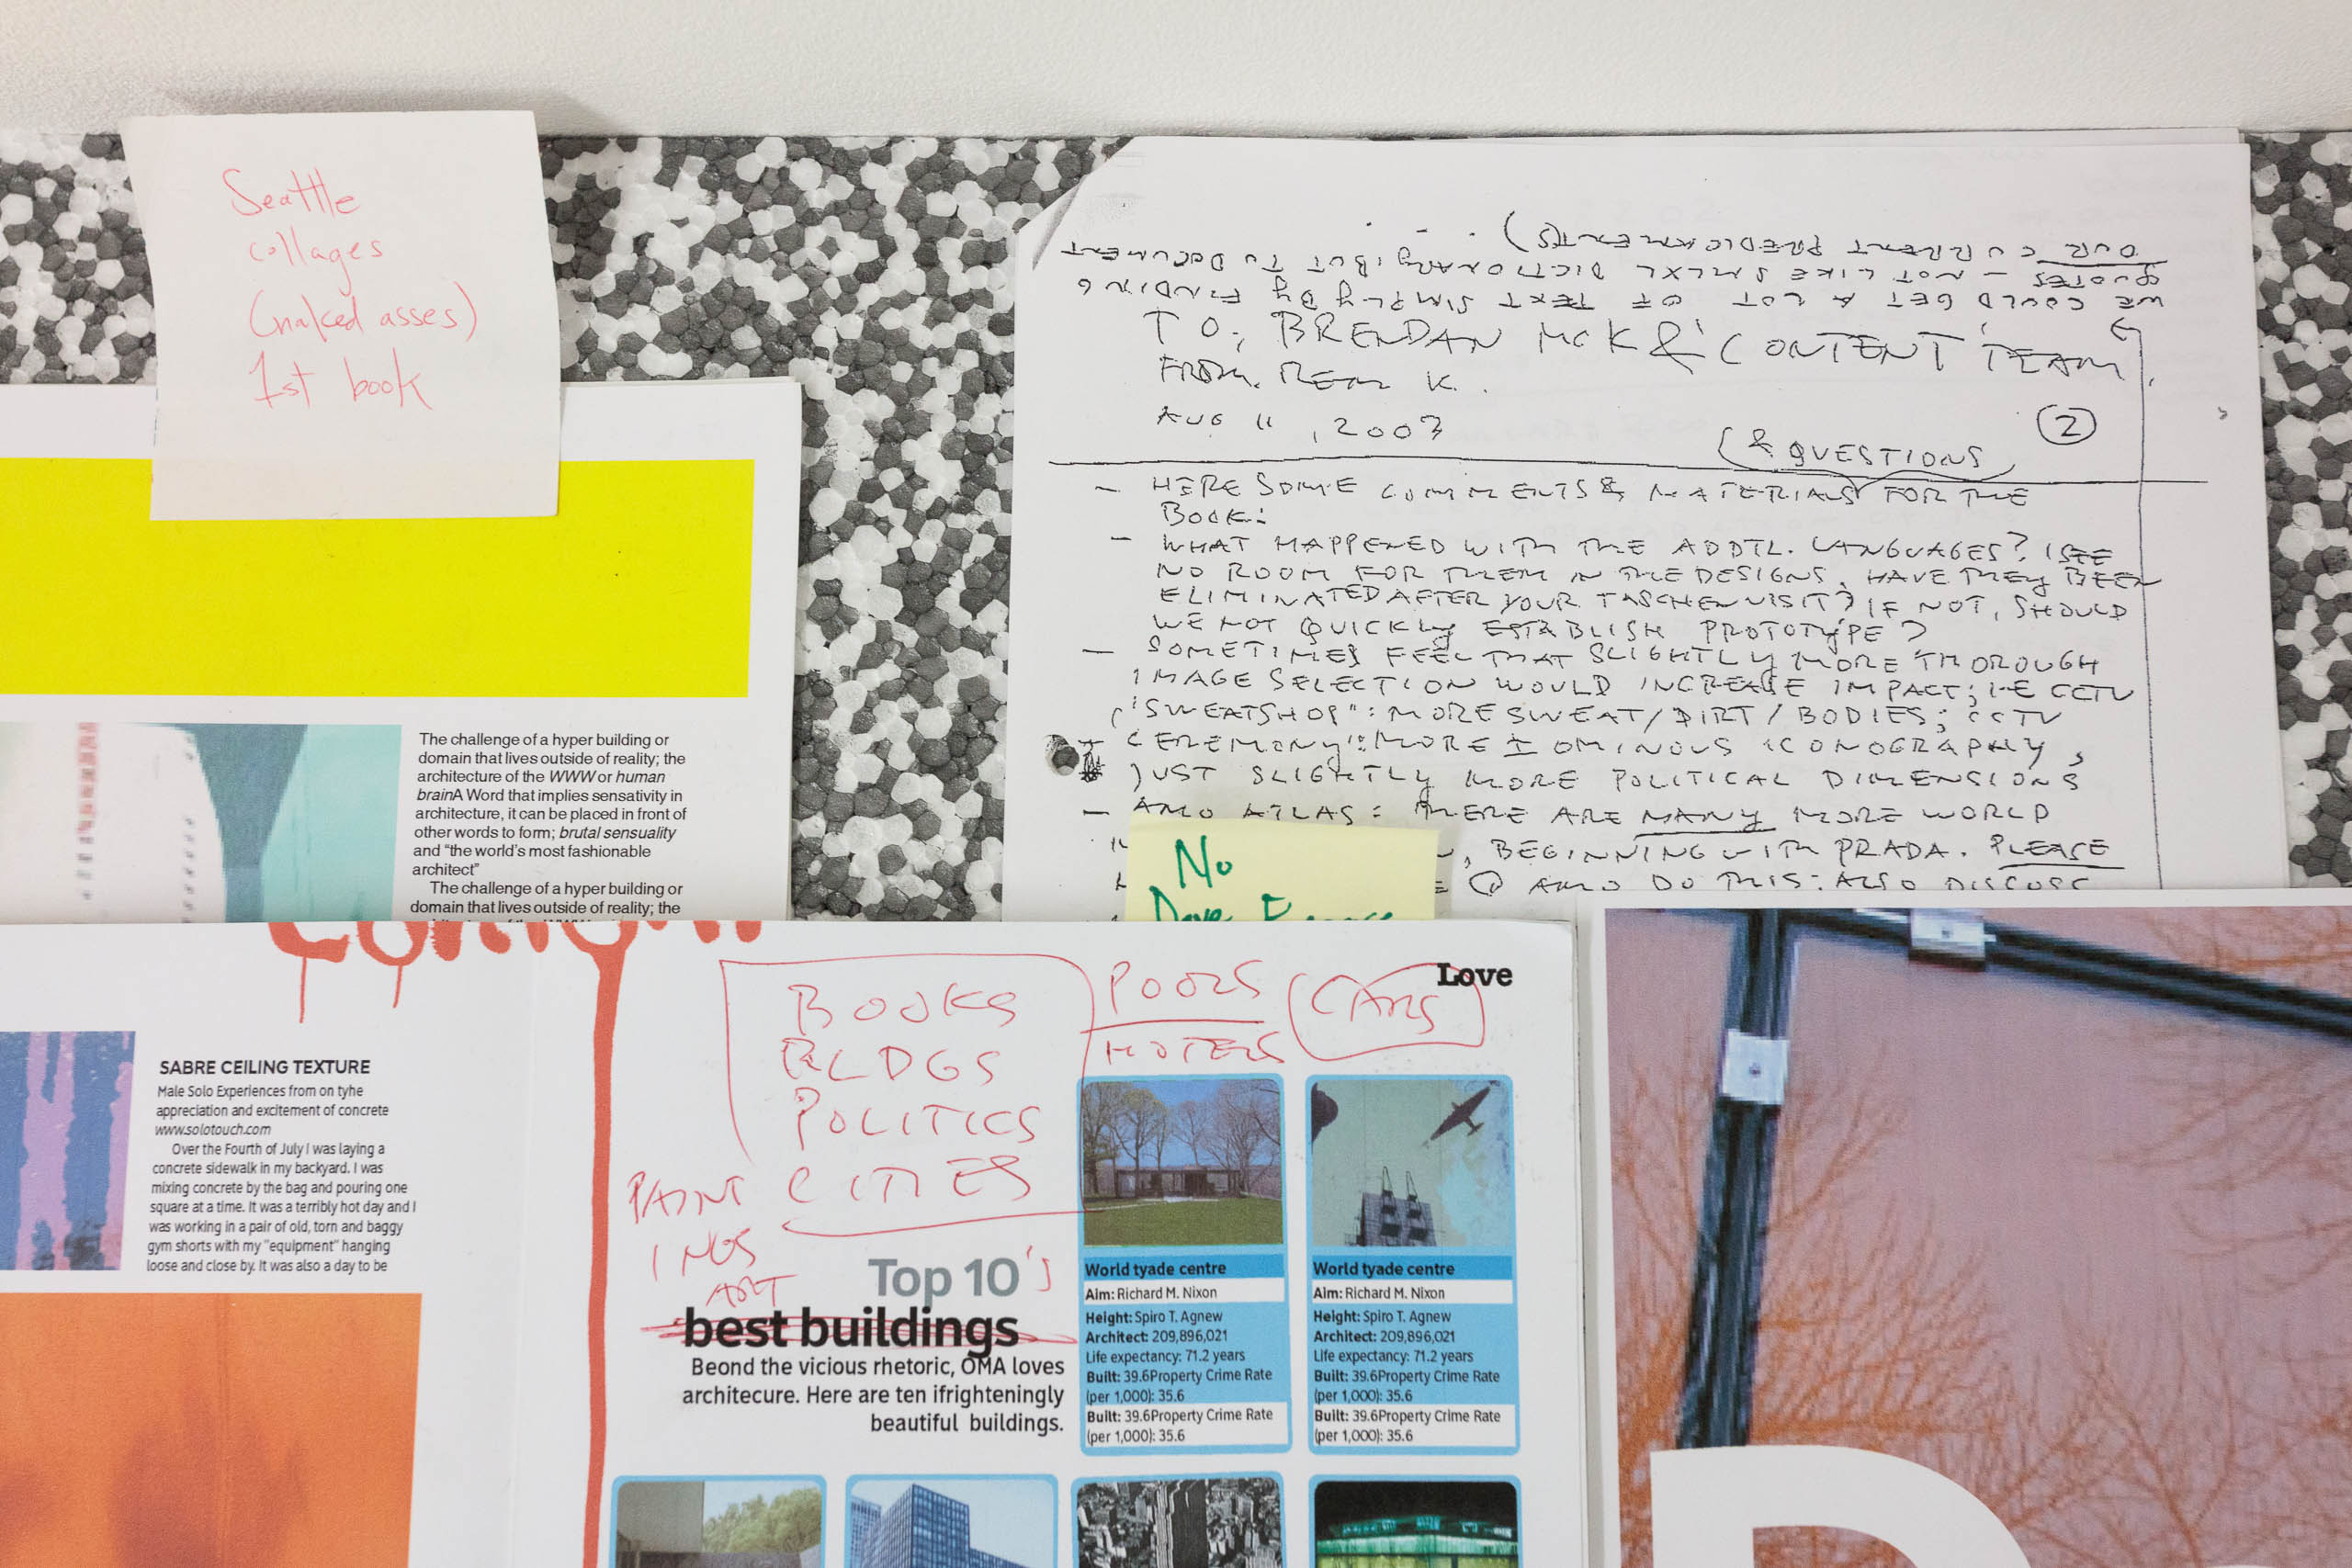 Seattle
collages
(naked asses)
1st book
WE COULD GET A LOT OF TEXT SIMPLY BY FINDING
QUOTES – NOT LIKE SMLXL DICTIONARY, BUT TO DOCUMENT
OUR CURRENT PREDICAMENTS)
TO: BRENDAN MCK & 'CONTENT' TEAM.
FROM. REM K.
AUG 11, 2003
2
(& QUESTIONS)
– HERE SOME COMMENTS & MATERIALS FOR THE
BOOK:
– WHAT HAPPENED WITH THE ADDTL. LANGUAGES? I SEE
NO ROOM FOR THEM IN THE DESIGNS. HAVE THEY BEEN
ELIMINATED AFTER YOUR TASCHEN VISIT? IF NOT, SHOULD
WE NOT QUICKLY ESTABLISH PROTOTYPE?
– SOMETIMES FEEL THAT SLIGHTLY MORE THOROUGH
IMAGE SELECTION WOULD INCREASE IMPACT; I.E CCTV
"SWEATSHOP": MORE SWEAT/DIRT/BODIES; CCTV
CEREMONY": MORE OMINOUS ICONOGRAPHY,
JUST SLIGHTLY MORE POLITICAL DIMENSIONS
– AMO ATLAS: THERE ARE MANY MORE WORLD
, BEGINNING WITH PRADA. PLEASE
AMO DO THIS: ALSO DISCUSS
No
Dave
The challenge of a hyper building or
domain that lives outside of reality; the
architecture of the WWW or human
brainA Word that implies sensativity in
architecture, it can be placed in front of
other words to form; brutal sensuality
and “the world's most fashionable
architect”
The challenge of a hyper building or
domain that lives outside of reality; the
SABRE CEILING TEXTURE
Male Solo Experiences from on tyhe
appreciation and excitement of concrete
www.solotouch.com
Over the Fourth of July I was laying a
concrete sidewalk in my backyard. I was
mixing concrete by the bag and pouring one
square at a time. It was a terribly hot day and I
was working in a pair of old, torn and baggy
gym shorts with my "equipment" hanging
loose and close by. It was also a day to be
BOOKS
BLDGS
POLITICS
CITIES
POOLS
HOTELS
CARS
Love
PAINT
INGS
ART
Top 10's
best buildings
Beond the vicious rhetoric, OMA loves
architecure. Here are ten ifrighteningly
beautiful buildings.
World tyade centre
Aim: Richard M. Nixon
Height: Spiro T. Agnew
Architect: 209,896,021
Life expectancy: 71.2 years
Built: 39.6Property Crime Rate
(per 1,000): 35.6
Built: 39.6Property Crime Rate
(per 1,000): 35.6
World tyade centre
Aim: Richard M. Nixon
Height: Spiro T. Agnew
Architect: 209,896,021
Life expectancy: 71.2 years
Built: 39.6Property Crime Rate
(per 1,000): 35.6
Built: 39.6Property Crime Rate
(per 1,000): 35.6